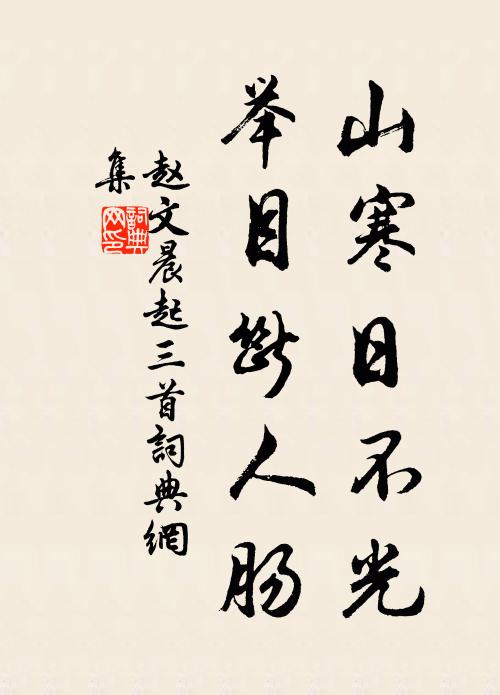 山寒日不光
举目断人肠
赵文晨起三首詞典網
集
詞典网印